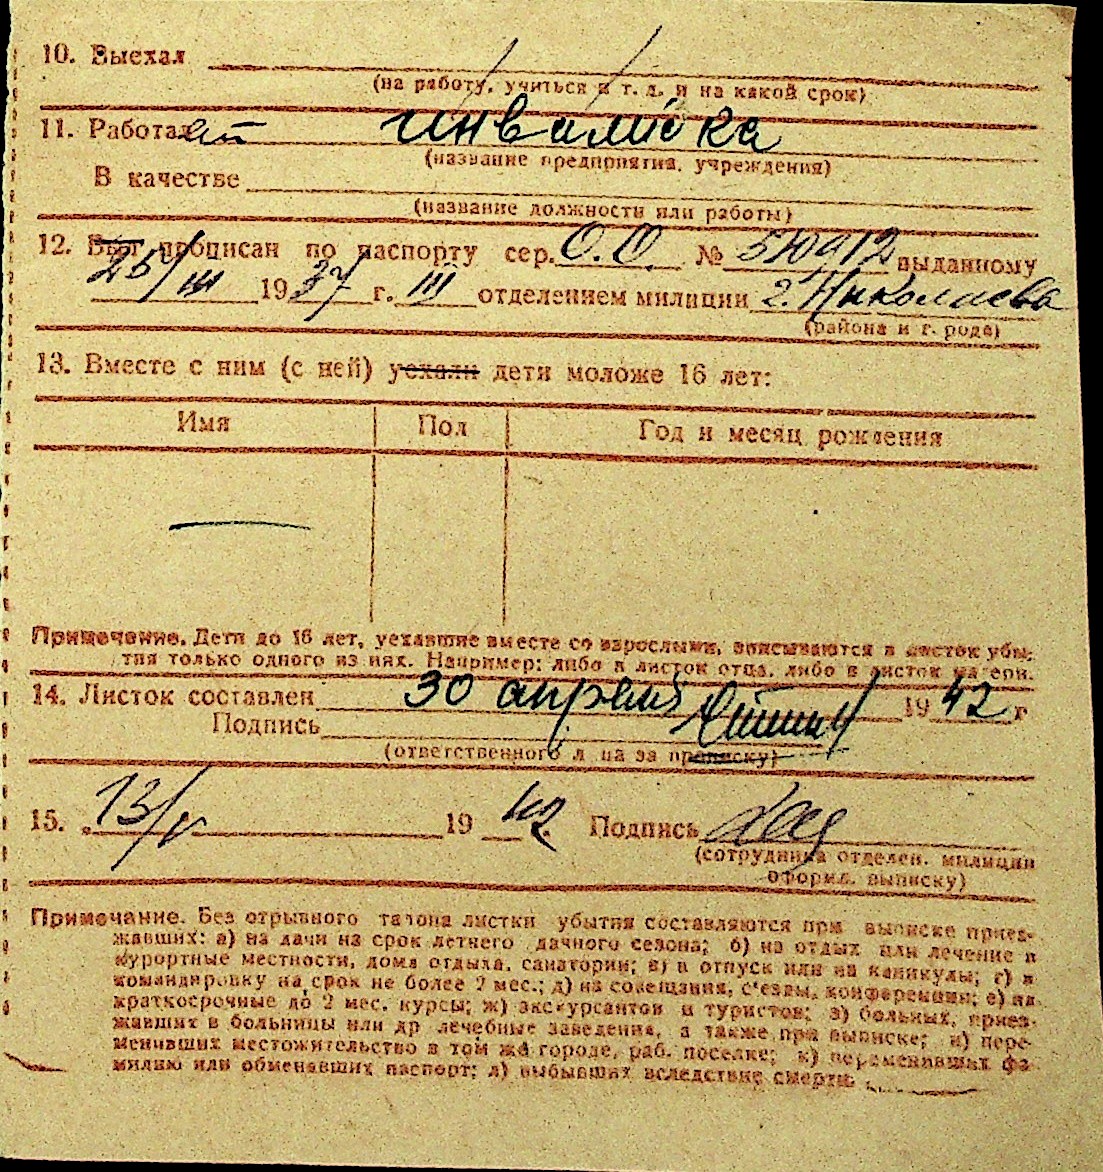 10. Выехал
(на работу, учиться и т. д. и на какой срок)
11. Работает инвалидка
(название предприятия, учреждения)
В качестве
(название должности или работы)
12. Был прописан по паспорту сер. О.О. № 510912 выданному
25/III 1937 г. III отделением милиции г. Николаева
(района и г. рода)
13. Вместе с ним (с ней) уехали дети моложе 16 лет:
Имя Пол Год и месяц рождения
Примечание. Дети до 16 лет, уехавшие вместе со взрослыми, вписываются в листок убы-
тия только одного из них. Например: либо в листок отца, либо в листок матери.
14. Листок составлен 30 апреля 1942 г
Подпись
(ответственного лица за прописку)
15. 13/V 1942 Подпись
(сотрудника отделен. милиции
оформ. выписку)
Примечание. Без отрывного талона листки убытия составляются при выписке приез-
жавших: а) на дачи на срок летнего дачного сезона; б) на отдых или лечение в
курортные местности, дома отдыха, санатории; в) в отпуск или на каникулы; г) в
командировку на срок не более 2 мес.; д) на совещания, с'езды, конференции; е) на
краткосрочные до 2 мес. курсы; ж) экскурсантов и туристов; з) больных, приез-
жавших в больницы или др лечебные заведения, а также при выписке; и) пере-
менивших местожительство в том же городе, раб. поселке; к) переменивших фа-
милию или обменявших паспорт; л) выбывших вследствие смерти